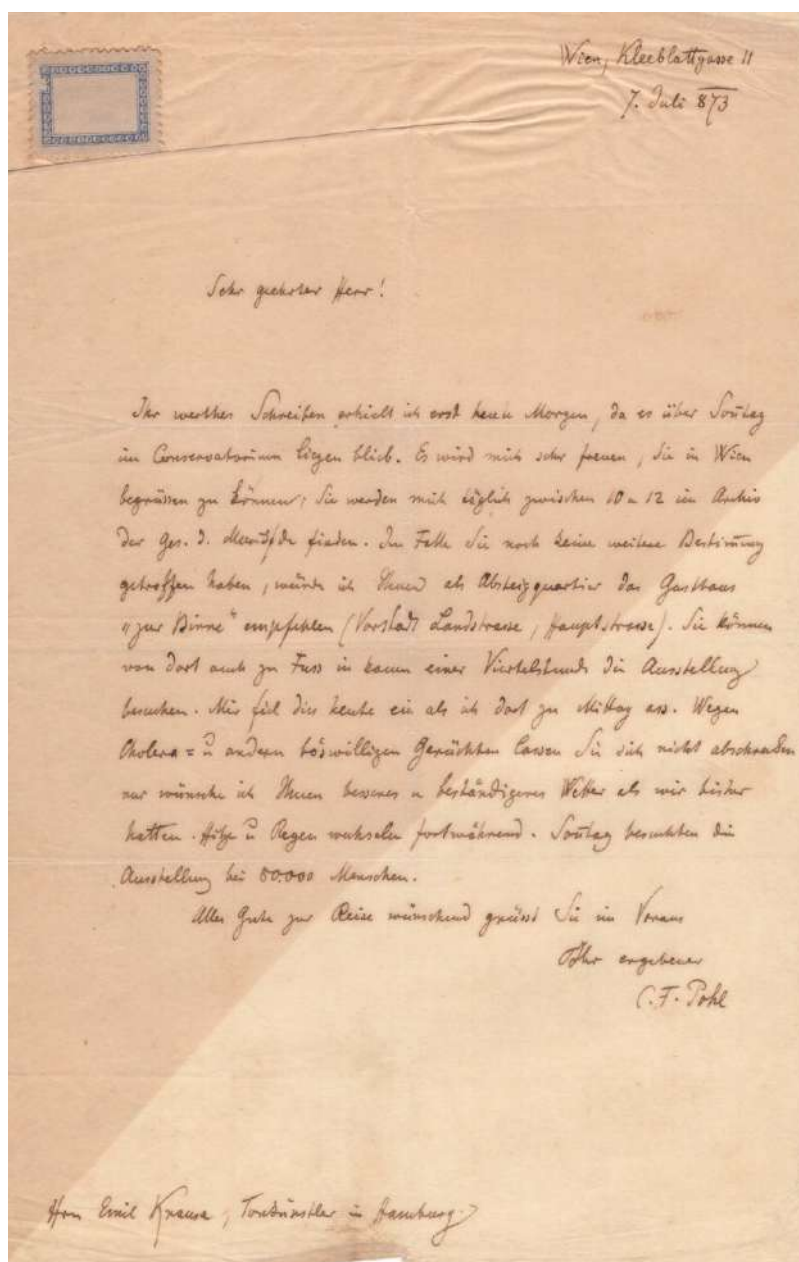 Wien, Kleeblattgasse 11
7. Juli 873
Sehr geehrter Herr!
Ihr werthes Schreiben erhielt ich erst heute Morgen, da es über Son̄tag
im Conservatorium liegen blieb. Es wird mich sehr freuen, Sie in Wien
begrüssen zu können; Sie werden mich täglich zwischen 10 u 12 im Archiv
der Ges. d. Musikfde finden. Im Falle Sie noch keine weitere Bestim̄ung
getroffen haben, würde ich Ihnen als Absteigquartier das Gasthaus
"zur Birne" empfehlen (Vorstadt Landstrasse, Hauptstrasse). Sie können
von dort auch zu Fuss in kaum einer Viertelstunde die Ausstellung
besuchen. Mir fiel dies heute ein als ich dort zu Mittag ass. Wegen
Cholera= u andern böswilligen Gerüchten lassen Sie sich nicht abschrecken
nur wünsche ich Ihnen besseres u beständigeres Wetter als wir bisher
hatten. Hitze u Regen wechseln fortwährend. Son̄tag besuchten die
Ausstellung bei 80.000 Menschen.
Alles Gute zur Reise wünschend grüsst Sie im Voraus
Ihr ergebener
C. F. Pohl
Hrn Emil Krause, Tonkünstler in Hamburg.